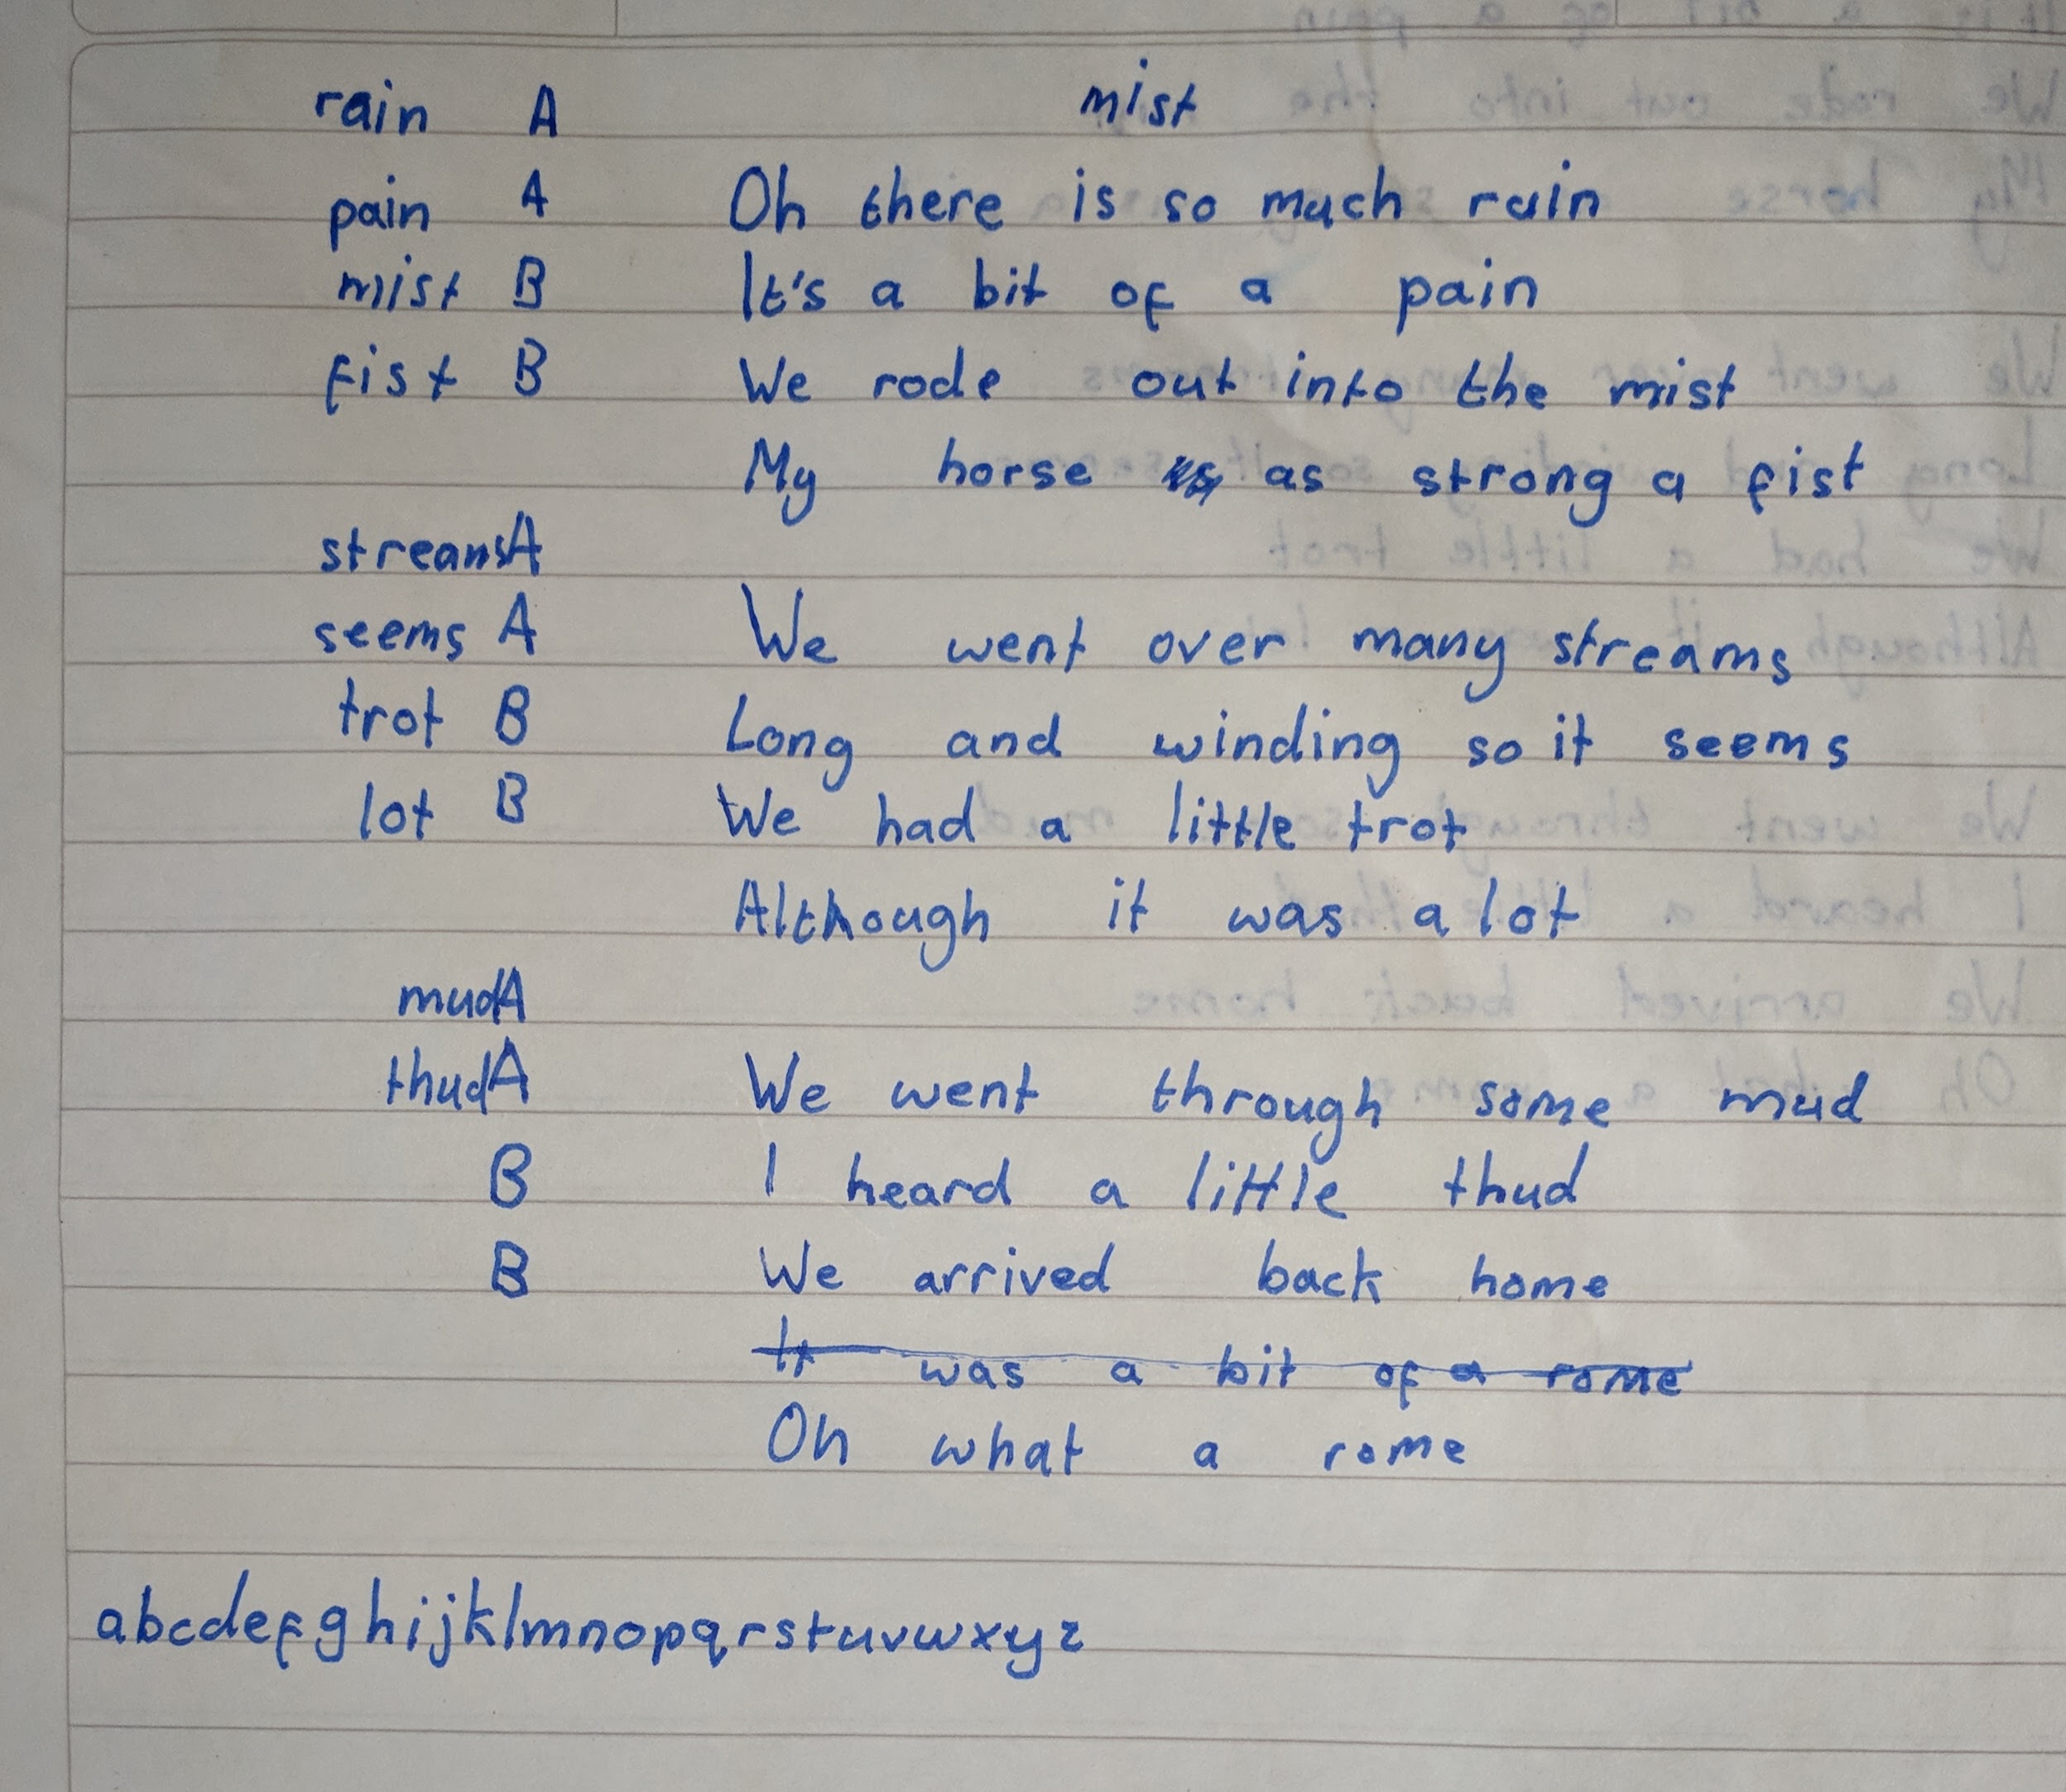 rain A mist
pain A Oh there is so much rain
mist B It's a bit of a pain
fist B We rode out into the mist
My horse as strong a fist
streams A
seems A We went over many streams
trot B Long and winding so it seems
lot B We had a little trot
Although it was a lot
mud A
thud A We went through some mud
B I heard a little thud
B We arrived back home
It was a bit of a rome
Oh what a rome
abcdefghijklmnopqrstuvwxyz